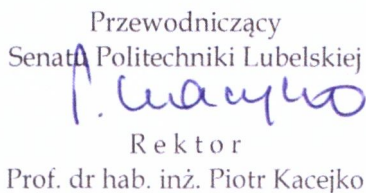 Przewodniczący
Senatu Politechniki Lubelskiej
R e k t o r
Prof. dr hab. inż. Piotr Kacejko